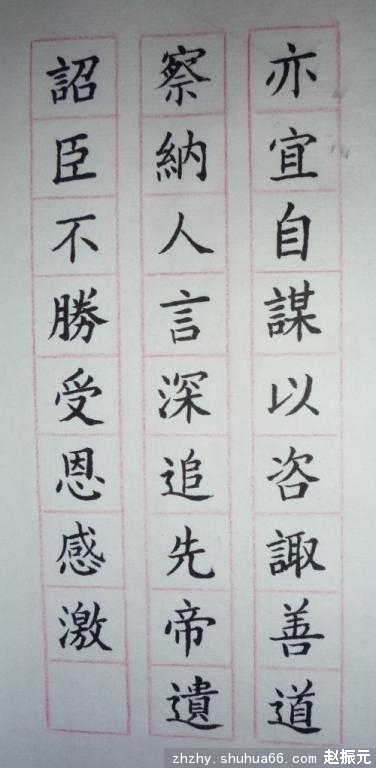 亦宜自謀以咨諏善道
察納人言深追先帝遺
詔臣不勝受恩感激
zhzhy.shuhua66.com 赵振元